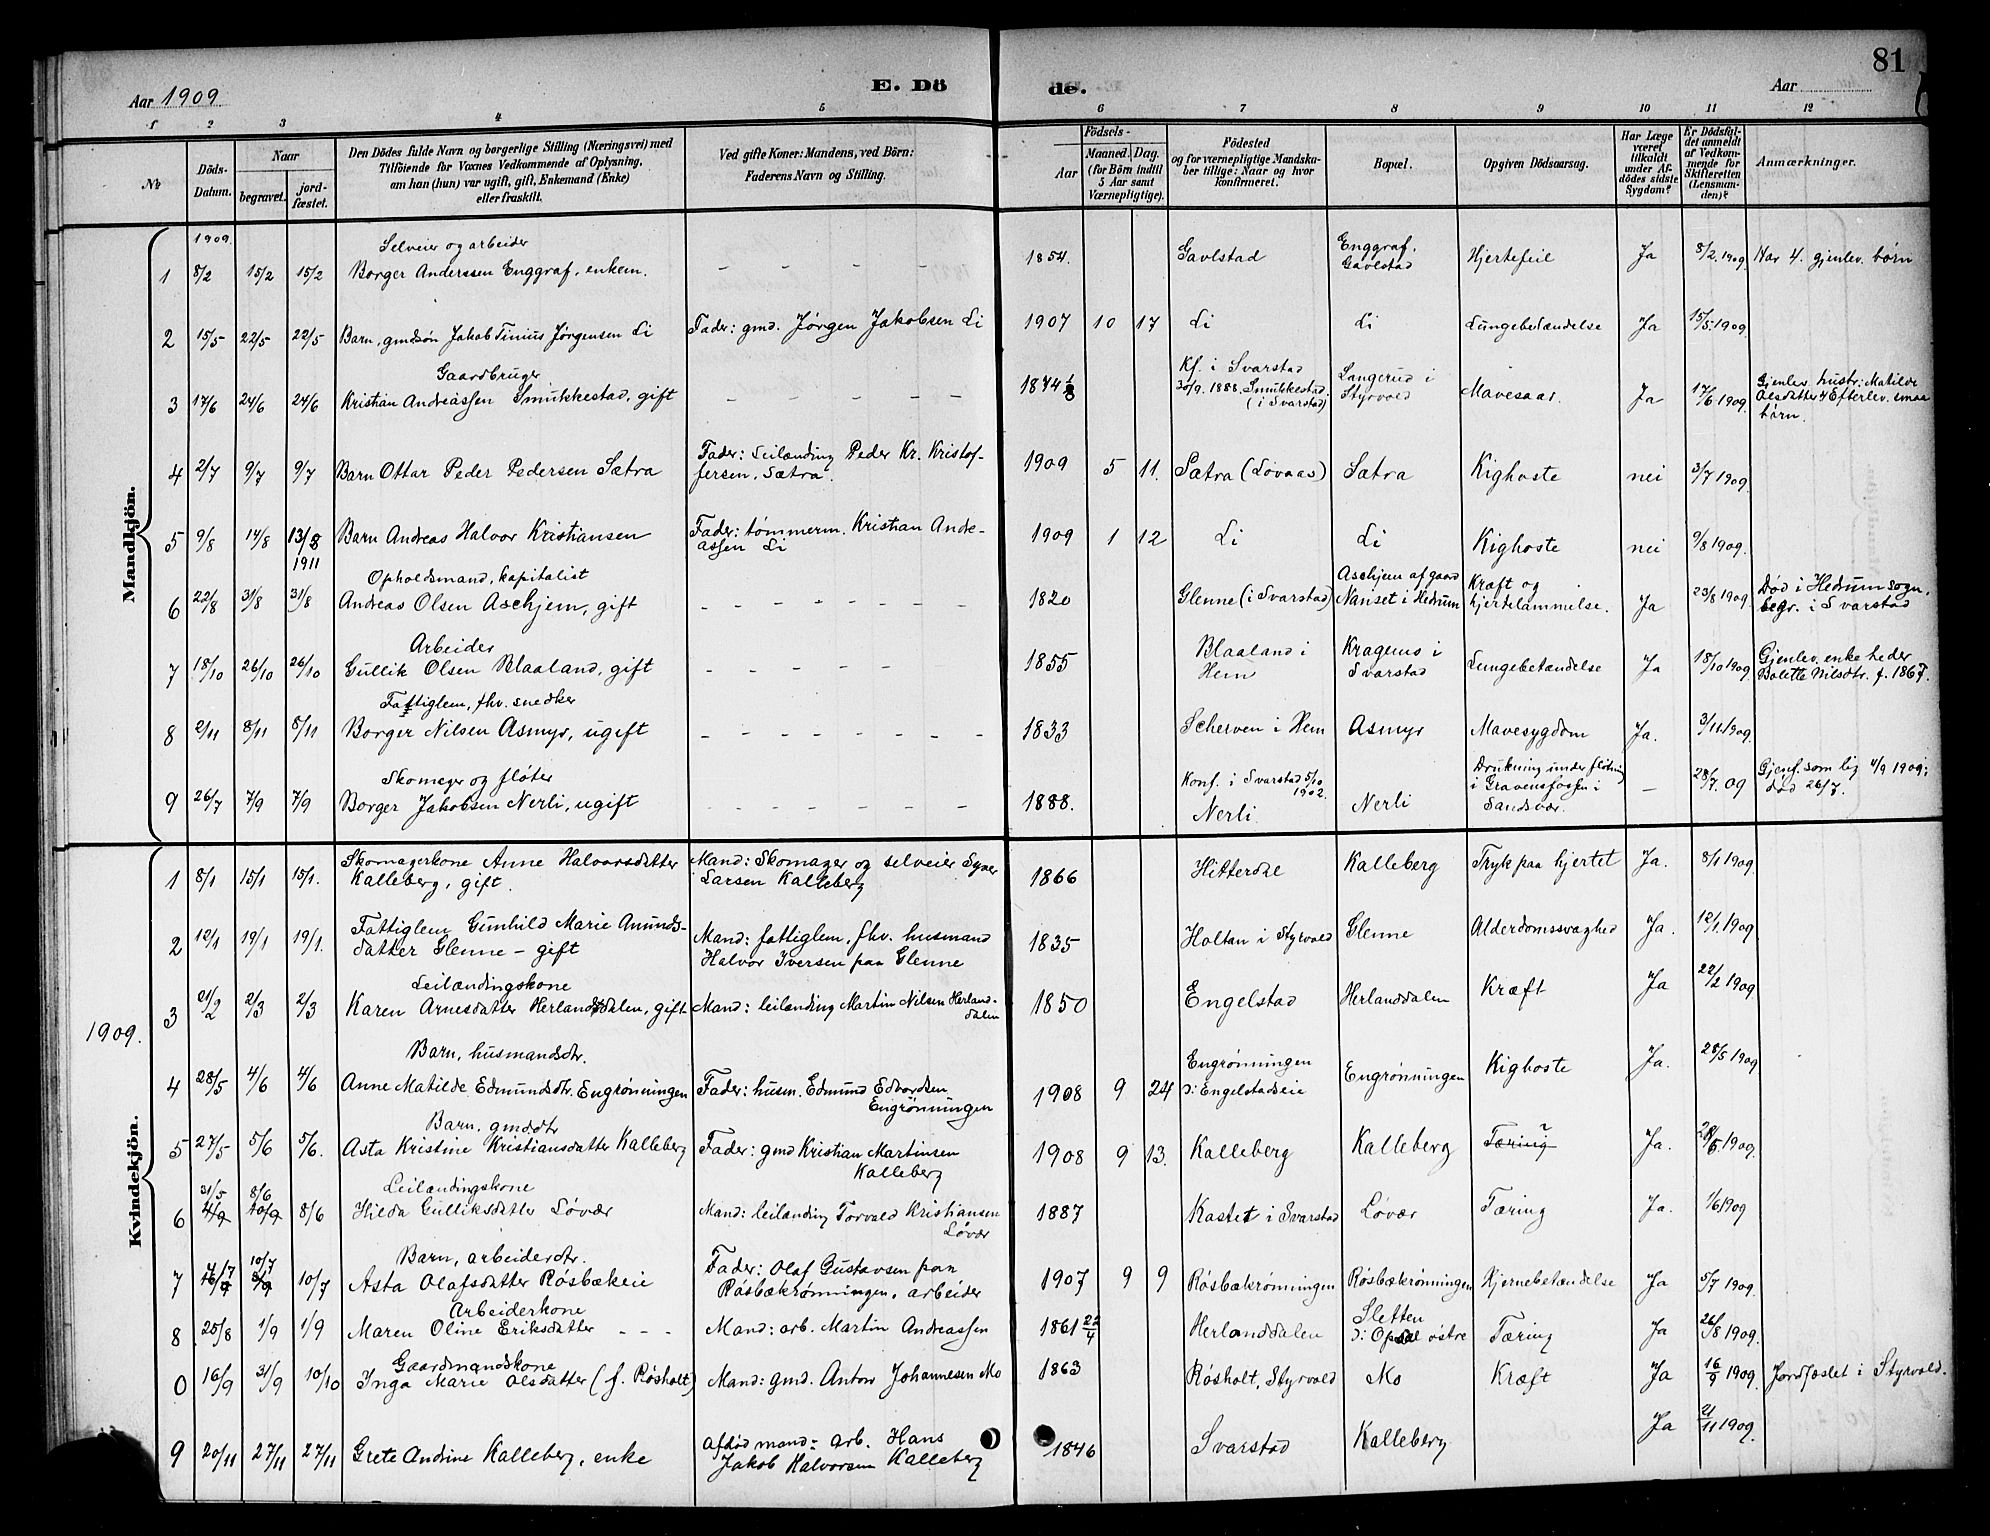 81
Aar 1909
E. Dö
de.
Aar
1 2 3 4 5 6 7 8 9 10 11 12
No
Döds-Datum.
Naar
begravet.
jord-fæstet.
Den Dödes fulde Navn og borgerlige Stilling (Næringsvei) med
Tilföiende för Voxnes Vedkommende af Oplysning,
om han (hun) var ugift, gift, Enkemand (Enke)
eller fraskilt.
Ved gifte Koner: Mandens, ved Börn:
Faderens Navn og Stilling.
Födsels-
Aar
Maaned. Dag.
(for Börn indtil
5 Aar samt
Værnepligtige).
Födested
og for værnepligtige Mandska-
ber tillige: Naar og hvor
konfirmeret.
Bopæl.
Opgiven Dödsaarsag.
Har Læge
været
tilkaldt
under Af-
dödes sidste
Sygdom?
Er Dödsfal-
det anmeldt
af Vedkom-
mende for
Skifteretten
(Lensman-
den)?
Anmærkninger.
Mandkjön.
1909.
Selveier og arbeider
1 8/2 15/2 15/2 Borger Anderssen Enggraf, enkem. - - - - - 1854. Gavlstad Enggraf, Gavlstad Hjertefeil Ja 8/2 1909 Har 4. gjenlev. børn
2 15/5 22/5 22/5 Barn, gmdsøn Jakob Tinius Jørgensen Li Fader: gmd. Jørgen Jakobsen Li 1907 10 17 Li Li Lungebetændelse Ja 15/5 1909
Gaardbruger
3 17/6 24/6 24/6 Kristian Andreassen Smukkestad, gift - - - - - 1874 Kf. i Svarstad 30/9. 1888. Smukkestad (i Svarstad) Langerud i Styrvold Mavesaar. Ja 17/6 1909 Gjenlev. hustr: Matilde Olsdatter 4 Efterlev. smaa børn.
4 2/7 9/7 9/7 Barn Ottar Peder Pedersen Sætra Fader: Leilænding Peder Kr. Kristof-
fersen, Sætra. 1909 5 11. Sætra (Lovaas) Sætra Kighoste nei 3/7 1909.
5 9/8 14/8 13/8 1911 Barn Andreas Halvor Kristiansen Fader: tømmerm. Kristian Andre-
assen Li 1909 1 12 Li Li Kighoste nei 9/8 1909.
Opholdsmand, kapitalist
6 22/8 31/8 31/8 Andreas Olsen Aschjem, gift - - - - - - - 1820 Glenne (i Svarstad) Aschjem af gaard Nanset i Hedrum Kræft og hjertelammelse. Ja 23/8 1909 Død i Hedrum sogn, begr. i Svarstad
Arbeider
7 18/10 26/10 26/10 Gullik Olsen Blaaland, gift - - - - - 1855 Blaaland i Hem Kragenis i Svarstad Lungebetændelse Ja 18/10 1909 Gjenlev. enke heder Bolette Nilsdtr. f. 1867.
Fattiglem, fhv. snedker
8 2/11 8/11 8/11 Borger Nilsen Asmyr, ugift - - - - - - - 1833 Scherven i Hem Asmyr Mavesygdom Ja. 3/11 1909
Skomager og fløter
9 26/7 7/9 7/9 Borger Jakobsen Nerli, ugift - - - - - - - 1888. Konf. i Svarstad 5/10 1902. Nerli Nerli Drukning under fløtning i Gravensfossen i Sandsvær. - 28/7. 09 Gjenf. som lig 4/9 1909; død 26/7.
Kvindekjön.
1909.
1 8/1 15/1 15/1. Skomagerkone Anne Halvorsdatter
Kalleberg, gift. Mand: Skomager og selveier Syver
Larsen Kalleberg 1866 Hitterdal Kalleberg Tryk paa hjertet Ja. 8/1 1909
2 12/1 19/1 19/1. Fattiglem Gunhild Marie Amunds-
datter Glenne - gift Mand: fattiglem, fhv. husmand
Halvor Iversen paa Glenne 1835 Holtan i Styrvold Glenne Alderdomssvaghed Ja. 12/1. 1909
Leilændingskone
3 21/2 2/3 2/3 Karen Arnesdatter Herlanddalen, gift Mand: leilænding Martin Nilsen Herland-
dalen 1850 Engelstad Herlanddalen Kræft Ja 22/2 1909
Barn, husmandsdtr.
4 28/5 4/6 4/6 Anne Matilde Edmundsdtr. Engrønningen Fader: husm. Edmund Edvardsen
Engrønningen 1908 9 24 Engrønningen ɔ: Engelstadseie Engrønningen Kighoste Ja. 28/5 1909
Barn, gmddtr
5 27/5 5/6 5/6. Asta Kristine Kristiansdatter Kalleberg Fader: gmd Kristian Martinsen
Kalleberg 1908 9 13. Kalleberg Kalleberg Tæring ? Ja. 28/5. 1909.
Leilændingskone
6 31/5 4/9 8/6 10/9 8/6 Hilda Gulliksdatter Løvær Mand: leilænding Torvald Kristiansen
Løvær 1887 Kastet i Svarstad Løvær Tæring Ja. 1/6 1909
Barn, arbeiderdtr.
7 4/7 16/9 10/7 10/7 Asta Olafsdatter Røsbækeie Fader: Olaf Gustavsen paa
Røsbækrønningen, arbeider 1907 9 9 Røsbækrønningen Røsbækrønningen Hjernebetændelse Ja 5/7 1909.
Arbeiderkone
8 25/8 1/9 1/9 Maren Oline Eriksdatter - - - Mand: arb. Martin Andreassen 1861 22/4 Herlanddalen Sletten ɔ: Opsal østre Tæring Ja 26/8 1909.
Gaardmandskone
0 16/9 31/9 10/10 Inga Marie Olsdatter (f. Røsholt) Mand: gmd. Anton Johannesen Mo 1863 Røsholt, Styrvold Mo Kræft Ja 16/9 1909. Jordfæstet i Styrvold.
9 20/11 27/11 27/11 Grete Andrine Kalleberg, enke Afdød mand: arb. Hans
Jakob Halvorsen Kalleberg 1846 Svarstad Kalleberg Ja 21/11 1909.